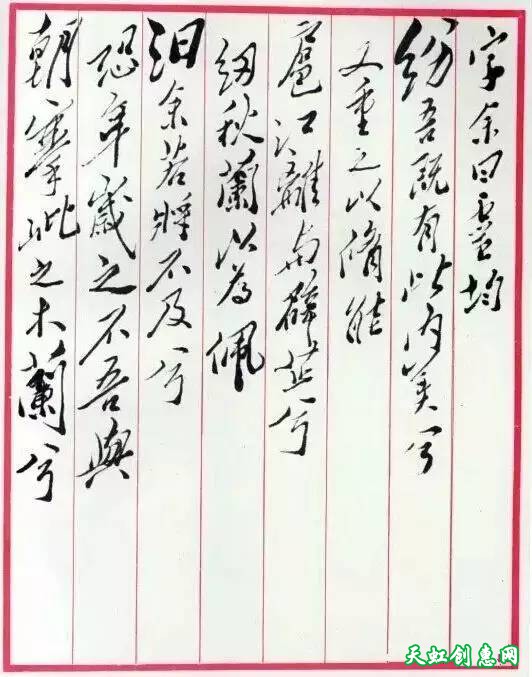 字余曰靈均
纷吾既有此内美兮
又重之以脩能
扈江離与辟芷兮
纫秋蘭以為佩
汨余若将不及兮
恐年歲之不吾與
朝搴阰之木蘭兮
天虹创惠网